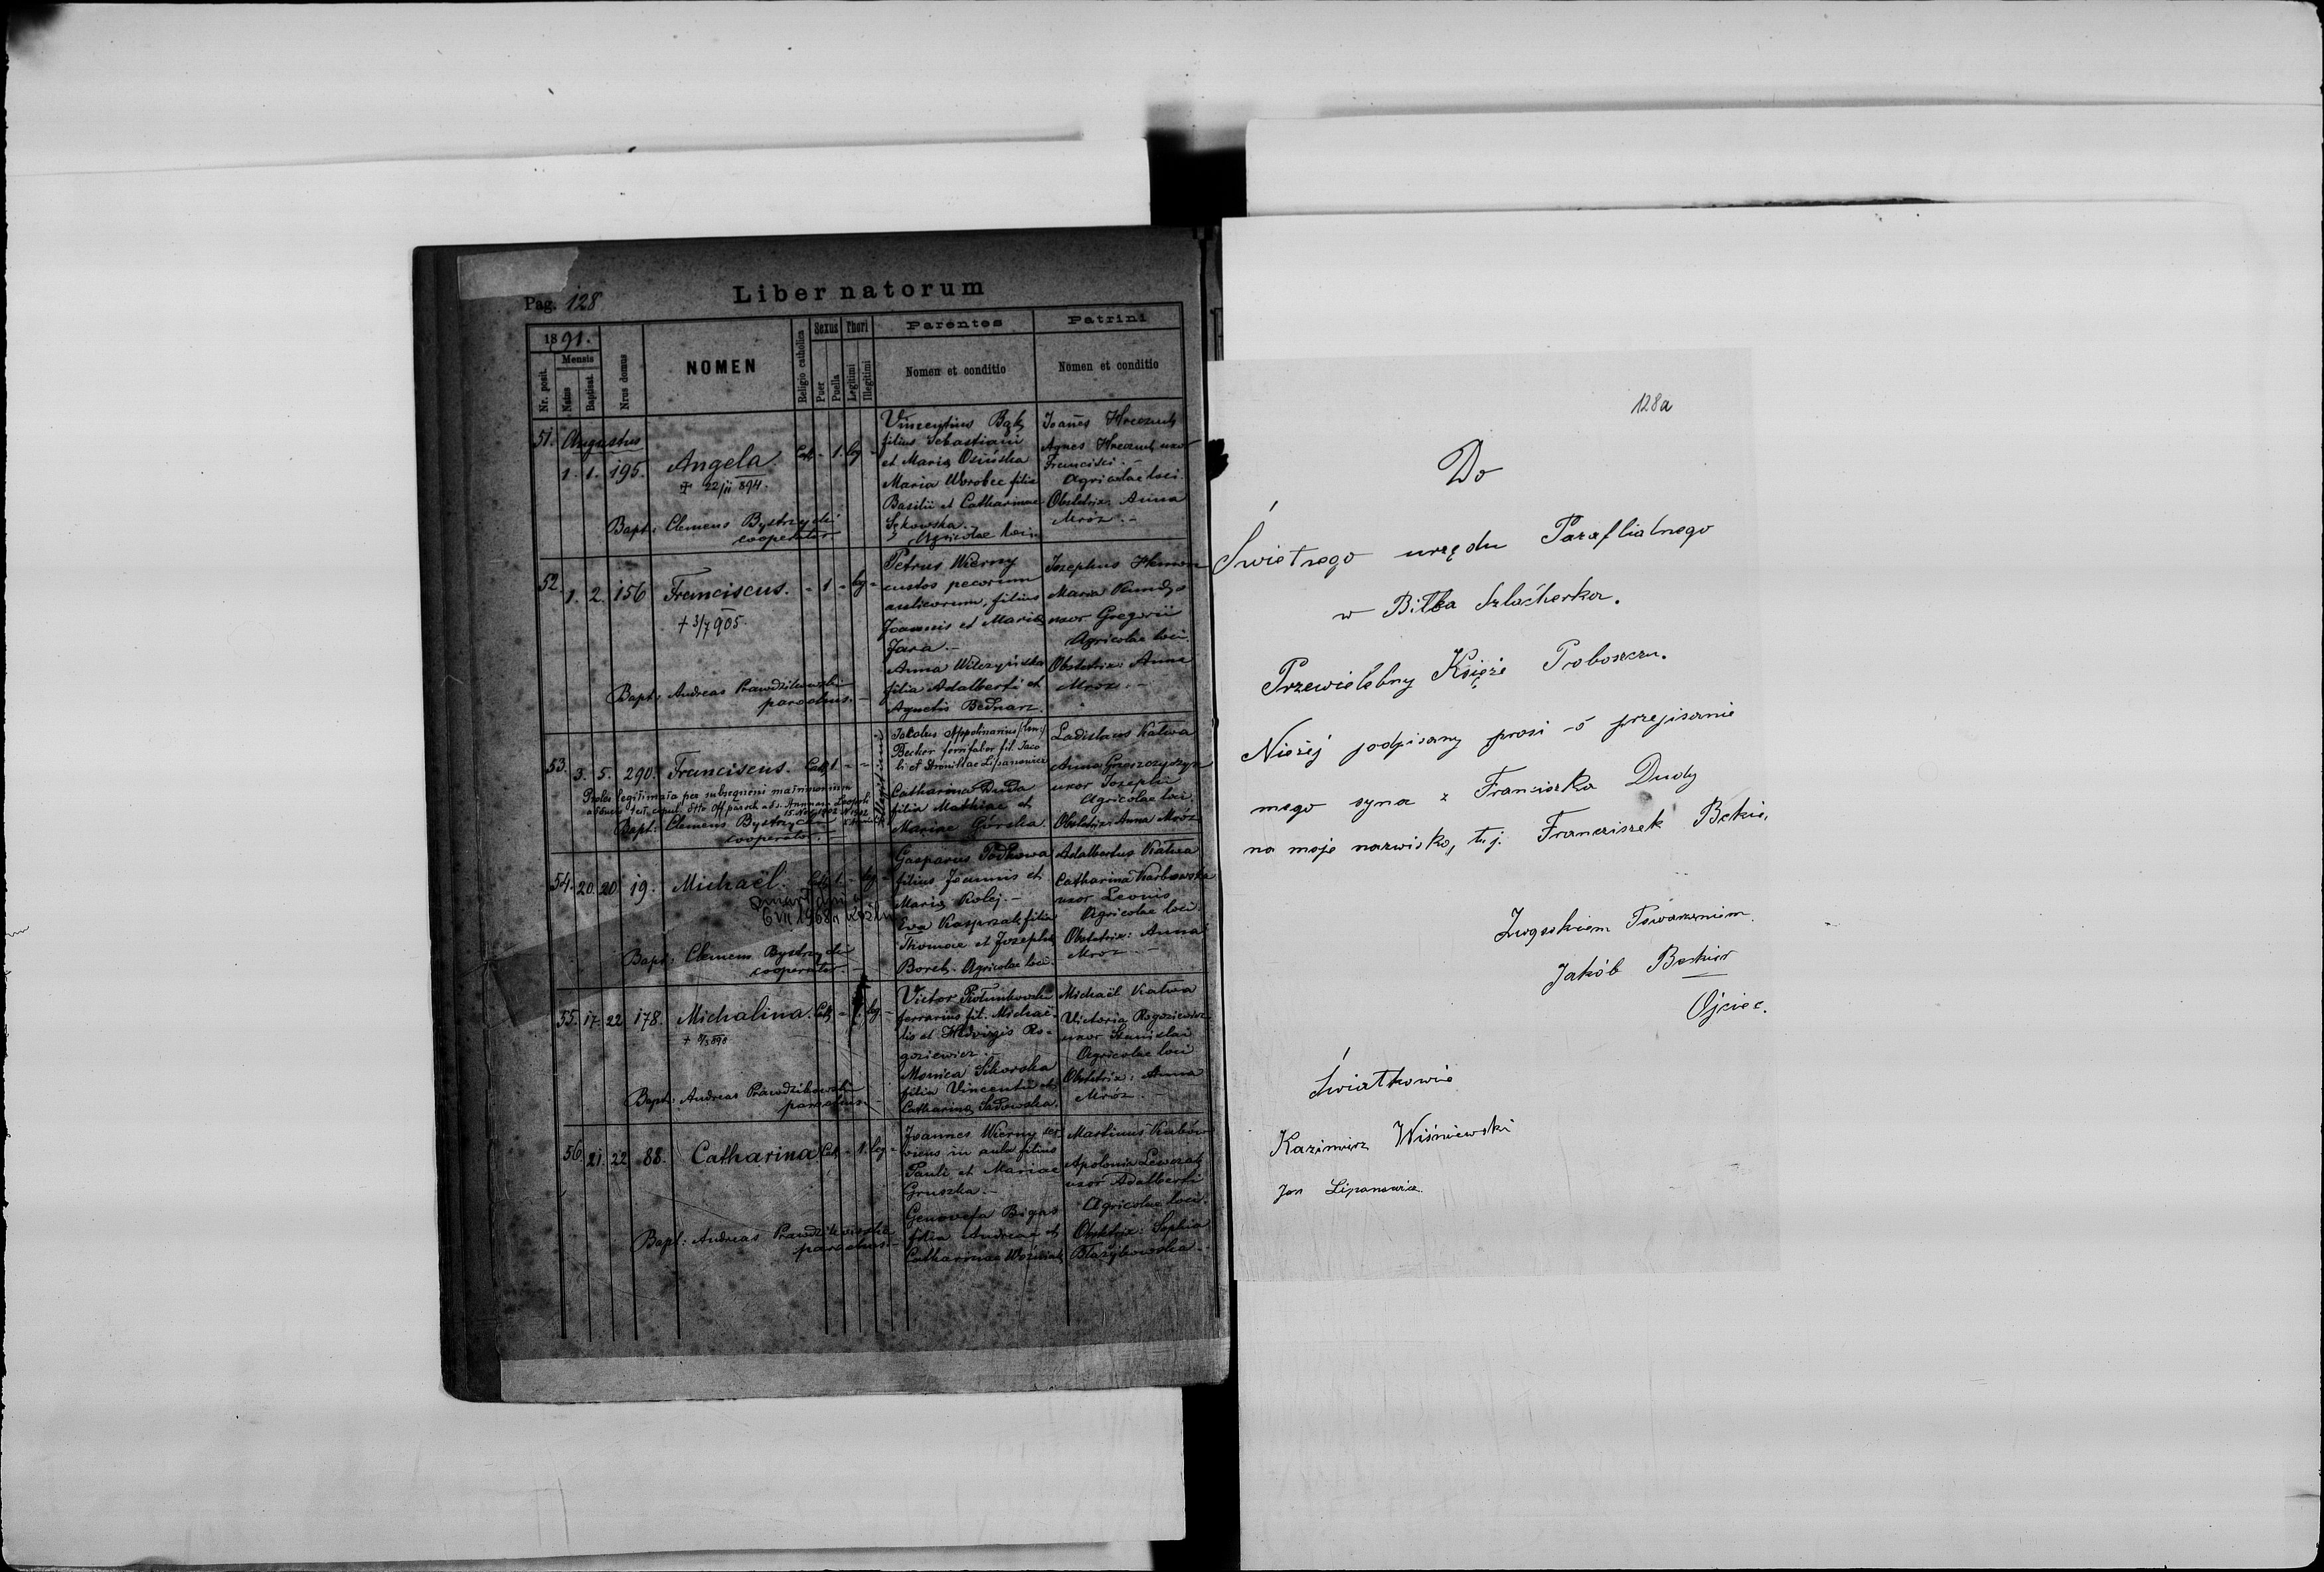 Pag. 128
Liber natorum
1891.
Mensis
Nr. posit.
Natus
Baptisat.
Nrus domus
NOMEN
Religio catholica
Sexus
Puer
Puella
Thori
Legitimi
Illegitimi
Parentes
Nomen et conditio
Patrini
Nomen et conditio
51. Augustus
1. 1. 195. Angela. Cath - 1. leg -
+ 22/II 894.
Bapt: Clemens Bystrzycki
cooperator
Vincentius Bąk
filius Sebastiani
et Maria Osińska
Maria Worobec filia
Basilii et Catharinae
Sękowska.
Agricolae loci
Joannes
Agnes uxor
Francisci. -
Agricolae loci.
Obstetrix: Anna
Mróz. -
52. 1. 2. 156 Franciscus. - 1 - leg -
+ 3/7 905.
Bapt: Andreas Prawdzikowski
parochus. -
Petrus Wierny
custos pecorum
aulicorum, filius
Joannis et Maria
Jara. -
Anna Wilczyńska
filia Adalberti et
Agnetis Bednarz.
Josephus
Maria
uxor Gregorii
Agricolae loci.
Obstetrix: Anna
Mróz. -
53. 3. 5. 290. Franciscus. Cath 1 - -
Illegitimi
Proles legitimata per subsequens matrimonium
Bapt: Clemens Bystrzycki
cooperator.
Jacobus Appolinarius
Becker fil. Jaco
bi et Lipanowicz
Catharina Duda
filia Mathiae et
Mariae Górska.
Ladislaus Kalwa
Anna
uxor Josephi
Agricolae loci.
Obstetrix: Anna Mróz
54. 20. 20 19. Michaël. Cath 1. - leg -
6 VII 1968
Bapt: Clemens Bystrzycki
cooperator. -
Gasparus Podkowa
filius Joannis et
Maria Kolej. -
Eva Kasprzak filia
Thomae et Josepha
Borek. Agricolae loci.
Adalbertus Kalwa
Catharina Karbowska
uxor Leonis
Agricolae loci.
Obstetrix: Anna
Mroz -
55. 17. 22 178. Michalina. Cath - 1. leg. -
Bapt: Andreas Prawdzikowski
parochus
Victor Piotunkowski
ferrarius fil. Michaë-
lis et Hedvigis Ro-
goziewicz. -
Monica Sikorska
filia Vincentii et
Catharina Sadowska.
Michaël Kalwa
Victoria Rogoziewicz
uxor Stanislai
Agricolae loci
Obstetrix: Anna
Mróz. -
56. 21. 22 88. Catharina Cath - 1. leg -
Bapt: Andreas Prawdzikowski
parochus. -
Joannes Wierny ser-
vicus in aula filius
Pauli et Mariae
Gruszka. -
Genovefa Bigas
filia Andreae et
Catharinae Woźniak
Martinus
Apolonia
uxor Adalberti
Agricolae loci.
Obstetrix: Sophia
Błażykowska. -
128a
Do
Świetnego urzędu Parafialnego
w Biłka Szlachecka.
Przewielebny Księże Proboszczu.
Niżej podpisany prosi -ó przepisanie
mego syna z Franciszka Dudy
na moje nazwisko, t.j. Franciszek Bekie,
Jakób Beckier
Ojciec.
Światkowie
Kazimierz Wiśniewski
Jan Lipanowicz.